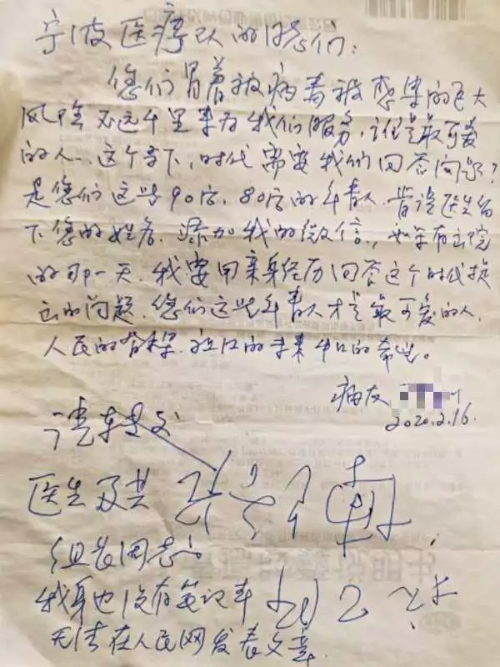 宁波医疗队的同志们：
您们冒着被病毒被感染的巨大
风险不远千里来为我们服务，谁是最可爱
的人、这个当下，时代需要我们回答问题？
是您们这些90后、80后的年青人，肯请医生留
下您的姓名、添加我的微信，
的那一天，我要用亲身经历回答这个时代提
出的问题，您们这些年青人才是最可爱的人，
人民的脊梁，祖国的未来中国的希望。
病友
2020.2.16.
请转交
医生及其
组长同志：
我身也没有笔记本
无法在人民网发表文章